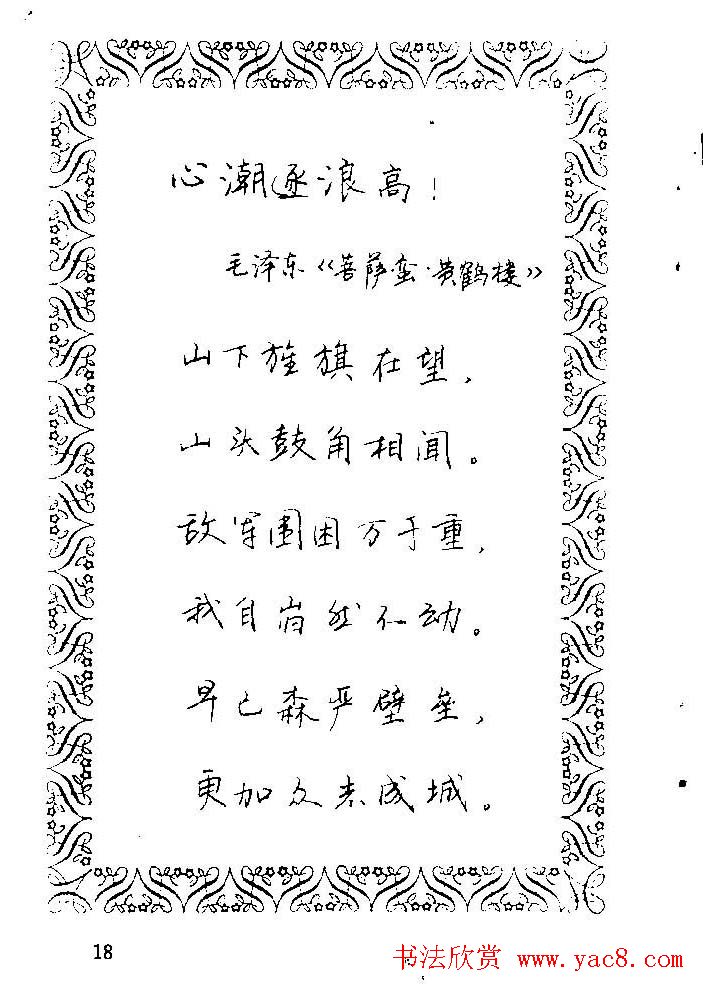 心潮逐浪高！
毛泽东《菩萨蛮·黄鹤楼》
山下旌旗在望，
山头鼓角相闻。
敌军围困万千重，
我自岿然不动。
早已森严壁垒，
更加众志成城。
18
书法欣赏 www.yac8.com